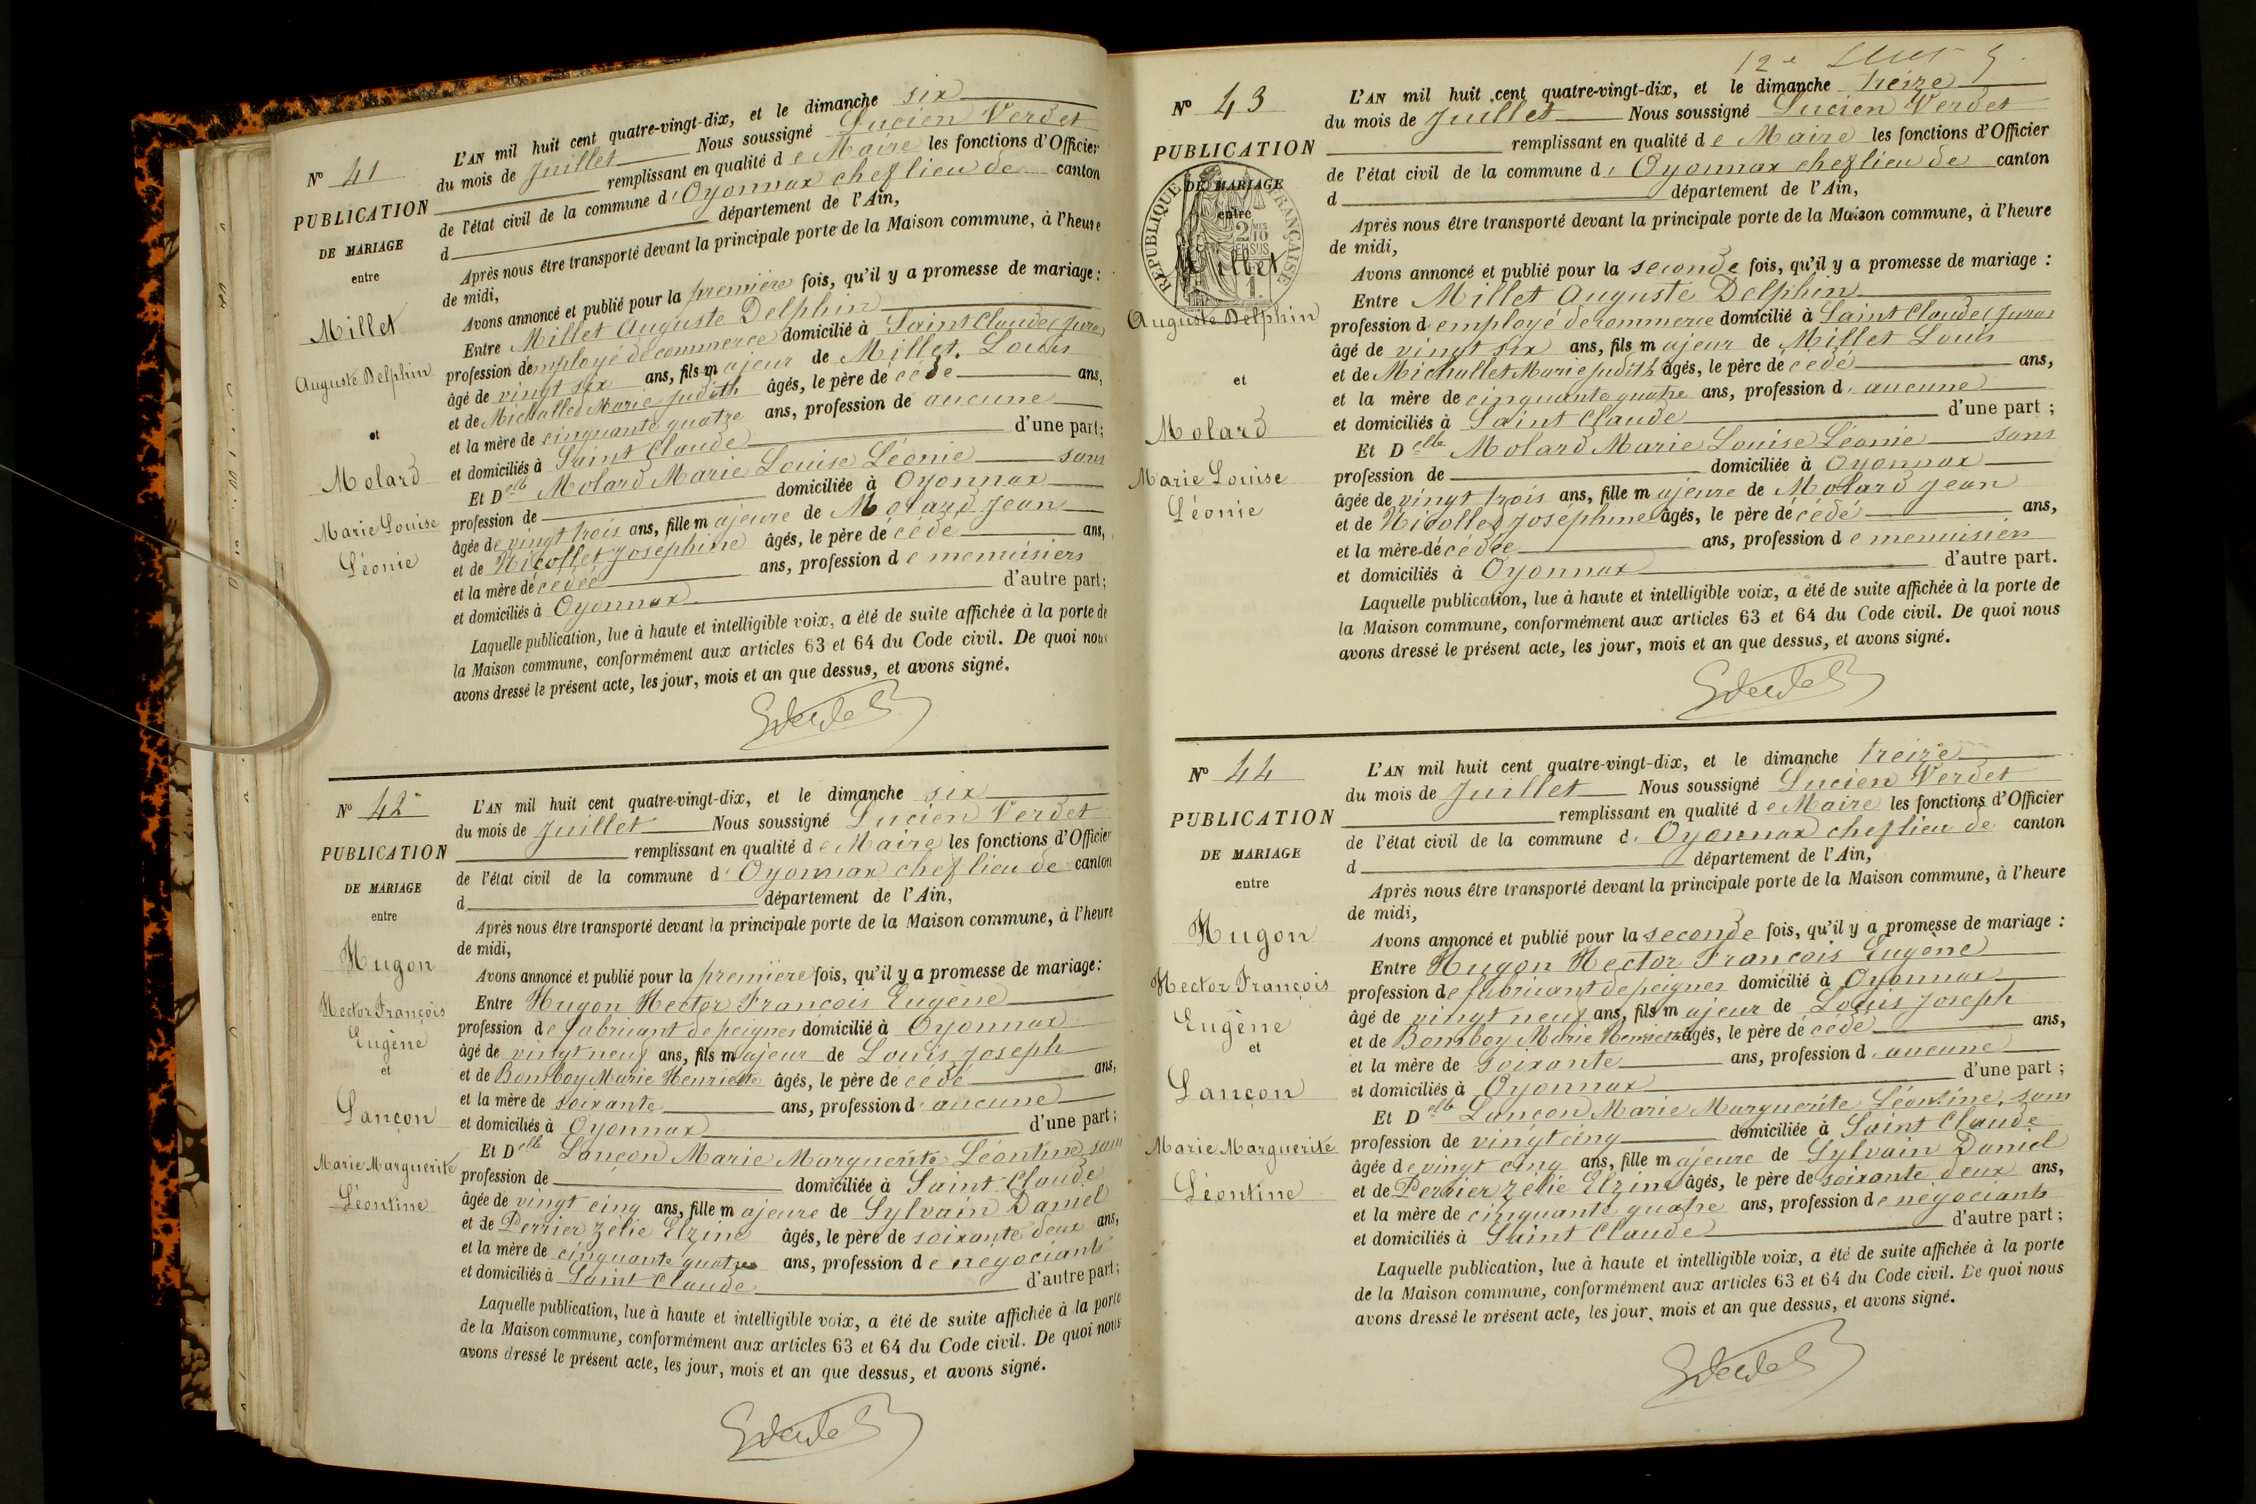 N° 41
PUBLICATION
DE MARIAGE
entre
Millet
Auguste Delphin
et
Molard
Marie Louise
Léonie
L'AN mil huit cent quatre-vingt-dix, et le dimanche six
du mois de Juillet Nous soussigné Lucien Verdet
remplissant en qualité de Maire les fonctions d'Officier
de l'état civil de la commune d'Oyonnax chef lieu de canton
d département de l'Ain,
Après nous être transporté devant la principale porte de la Maison commune, à l'heure
de midi,
Avons annoncé et publié pour la première fois, qu'il y a promesse de mariage :
Entre Millet Auguste Delphin
profession d'employé de commerce domicilié à Saint Claude (Jura)
âgé de vingt six ans, fils majeur de Millet Louis
et de Michallet Marie Judith âgés, le père décédé ans,
et la mère de cinquante quatre ans, profession de aucune
et domiciliés à Saint Claude d'une part ;
Et Delle Molard Marie Louise Léonie sans
profession de domiciliée à Oyonnax
âgée de vingt trois ans, fille majeure de Molard Jean
et de Nicollet Joséphine âgés, le père décédé ans,
et la mère décédée ans, profession de menuisiers
et domiciliés à Oyonnax d'autre part ;
Laquelle publication, lue à haute et intelligible voix, a été de suite affichée à la porte de
la Maison commune, conformément aux articles 63 et 64 du Code civil. De quoi nous
avons dressé le présent acte, les jour, mois et an que dessus, et avons signé.
N° 42
PUBLICATION
DE MARIAGE
entre
Hugon
Hector François
Eugène
et
Lançon
Marie Marguerite
Léontine
L'AN mil huit cent quatre-vingt-dix, et le dimanche six
du mois de Juillet Nous soussigné Lucien Verdet
remplissant en qualité de Maire les fonctions d'Officier
de l'état civil de la commune d'Oyonnax chef lieu de canton
d département de l'Ain,
Après nous être transporté devant la principale porte de la Maison commune, à l'heure
de midi,
Avons annoncé et publié pour la première fois, qu'il y a promesse de mariage :
Entre Hugon Hector François Eugène
profession de fabricant de peignes domicilié à Oyonnax
âgé de vingt neuf ans, fils majeur de Louis Joseph
et de Bomboy Marie Henriette âgés, le père décédé ans,
et la mère de soixante ans, profession d aucune
et domiciliés à Oyonnax d'une part ;
Et Delle Lançon Marie Marguerite Léontine sans
profession de domiciliée à Saint Claude
âgée de vingt cinq ans, fille majeure de Sylvain Daniel
et de Perrier Zélie Elzine âgés, le père de soixante deux ans,
et la mère de cinquante quatre ans, profession de négociants
et domiciliés à Saint Claude d'autre part ;
Laquelle publication, lue à haute et intelligible voix, a été de suite affichée à la porte
de la Maison commune, conformément aux articles 63 et 64 du Code civil. De quoi nous
avons dressé le présent acte, les jour, mois et an que dessus, et avons signé.
12e
N° 43
PUBLICATION
DE MARIAGE
entre
RÉPUBLIQUE FRANÇAISE
Millet
Auguste Delphin
et
Molard
Marie Louise
Léonie
L'AN mil huit cent quatre-vingt-dix, et le dimanche treize
du mois de Juillet Nous soussigné Lucien Verdet
remplissant en qualité de Maire les fonctions d'Officier
de l'état civil de la commune d'Oyonnax chef lieu de canton
d département de l'Ain,
Après nous être transporté devant la principale porte de la Maison commune, à l'heure
de midi,
Avons annoncé et publié pour la seconde fois, qu'il y a promesse de mariage :
Entre Millet Auguste Delphin
profession d employé de commerce domicilié à Saint Claude (Jura)
âgé de vingt six ans, fils majeur de Millet Louis
et de Michallet Marie Judith âgés, le père décédé ans,
et la mère de cinquante quatre ans, profession d aucune
et domiciliés à Saint Claude d'une part ;
Et Delle Molard Marie Louise Léonie sans
profession de domiciliée à Oyonnax
âgée de vingt trois ans, fille majeure de Molard Jean
et de Nicollet Joséphine âgés, le père décédé ans,
et la mère décédée ans, profession de menuisiers
et domiciliés à Oyonnax d'autre part.
Laquelle publication, lue à haute et intelligible voix, a été de suite affichée à la porte de
la Maison commune, conformément aux articles 63 et 64 du Code civil. De quoi nous
avons dressé le présent acte, les jour, mois et an que dessus, et avons signé.
N° 44
PUBLICATION
DE MARIAGE
entre
Hugon
Hector François
Eugène
et
Lançon
Marie Marguerite
Léontine
L'AN mil huit cent quatre-vingt-dix, et le dimanche treize
du mois de Juillet Nous soussigné Lucien Verdet
remplissant en qualité de Maire les fonctions d'Officier
de l'état civil de la commune d'Oyonnax chef lieu de canton
d département de l'Ain,
Après nous être transporté devant la principale porte de la Maison commune, à l'heure
de midi,
Avons annoncé et publié pour la seconde fois, qu'il y a promesse de mariage :
Entre Hugon Hector François Eugène
profession de fabricant de peignes domicilié à Oyonnax
âgé de vingt neuf ans, fils majeur de Louis Joseph
et de Bomboy Marie Henriette âgés, le père décédé ans,
et la mère de soixante ans, profession d aucune
et domiciliés à Oyonnax d'une part ;
Et Delle Lançon Marie Marguerite Léontine, sans
profession de vingt cinq domiciliée à Saint Claude
âgée de vingt cinq ans, fille majeure de Sylvain Daniel
et de Perrier Zélie Elzine âgés, le père de soixante deux ans,
et la mère de cinquante quatre ans, profession de négociants
et domiciliés à Saint Claude d'autre part ;
Laquelle publication, lue à haute et intelligible voix, a été de suite affichée à la porte
de la Maison commune, conformément aux articles 63 et 64 du Code civil. De quoi nous
avons dressé le présent acte, les jour, mois et an que dessus, et avons signé.